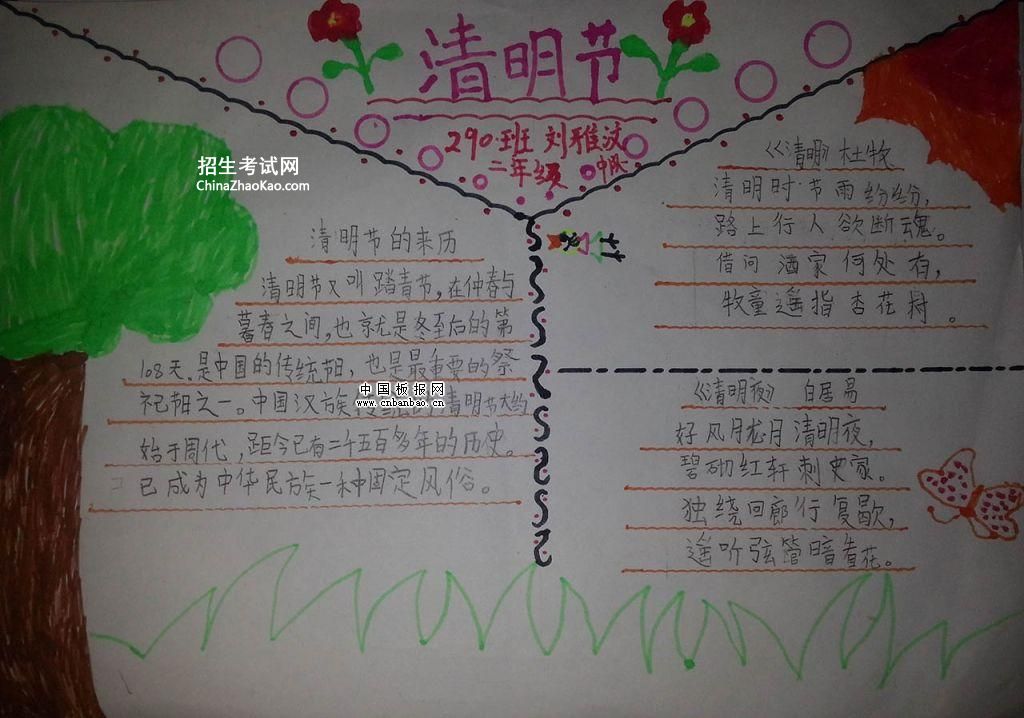 清明节
290班 刘雅汶
二年级 中队
招生考试网
ChinaZhaoKao.com
清明节的来历
清明节又叫踏青节,在仲春与
暮春之间,也就是冬至后的第
108天。是中国的传统节日,也是最重要的祭
祀节日之一。中国汉族传统的清明节大约
始于周代,距今已有二千五百多年的历史。
已成为中华民族一种固定风俗。
中国板报网
www.cnbanbao.cn
《清明》杜牧
清明时节雨纷纷,
路上行人欲断魂。
借问酒家何处有,
牧童遥指杏花村。
《清明夜》 白居易
好风胧月清明夜,
碧砌红轩刺史家。
独绕回廊行复歇,
遥听弦管暗看花。